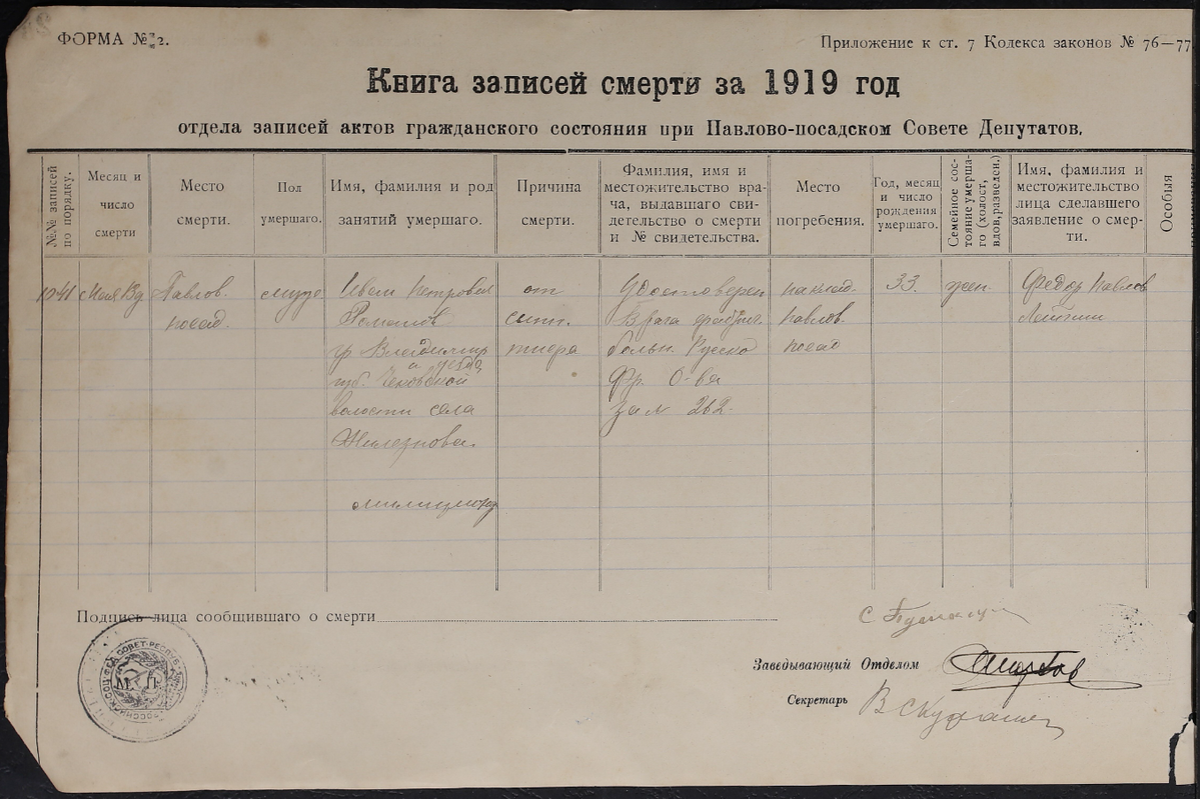 ФОРМА № 2.
Приложение к ст. 7 Кодекса законов № 76—77
Книга записей смерти за 1919 год
отдела записей актов гражданского состояния при Павлово-посадском Совете Депутатов.
№№ записей
по порядку.
Месяц и
число
смерти
Место
смерти.
Пол
умершаго.
Имя, фамилия и род
занятий умершаго.
Причина
смерти.
Фамилия, имя и
местожительство вра-
ча, выдавшаго сви-
детельство о смерти
и № свидетельства.
Место
погребения.
Год, месяц
и число
рождения
умершаго.
Семейное сос-
тояние умерша-
го (холост,
вдов,разведен.)
Имя, фамилия и
местожительство
лица сделавшего
заявление о смер-
ти.
Особыя
Мая
Павлов.
посад.
муж.
Иван Петрович
Романов
гр Владимир
и уезда
губ.
волости села
милиционер
от
сып.
тифа
Удостоверен
Врача фабрич.
больн. Русск
Фр. О-ва
за № 262.
на клад.
Павлов.
посад
33.
жен.
Федор Павлов
Подпись лица сообщившаго о смерти
Заведывающий Отделом
Секретарь
В
РОССИЙСК.СОЦ.ФЕД.СОВЕТ.РЕСПУБ.